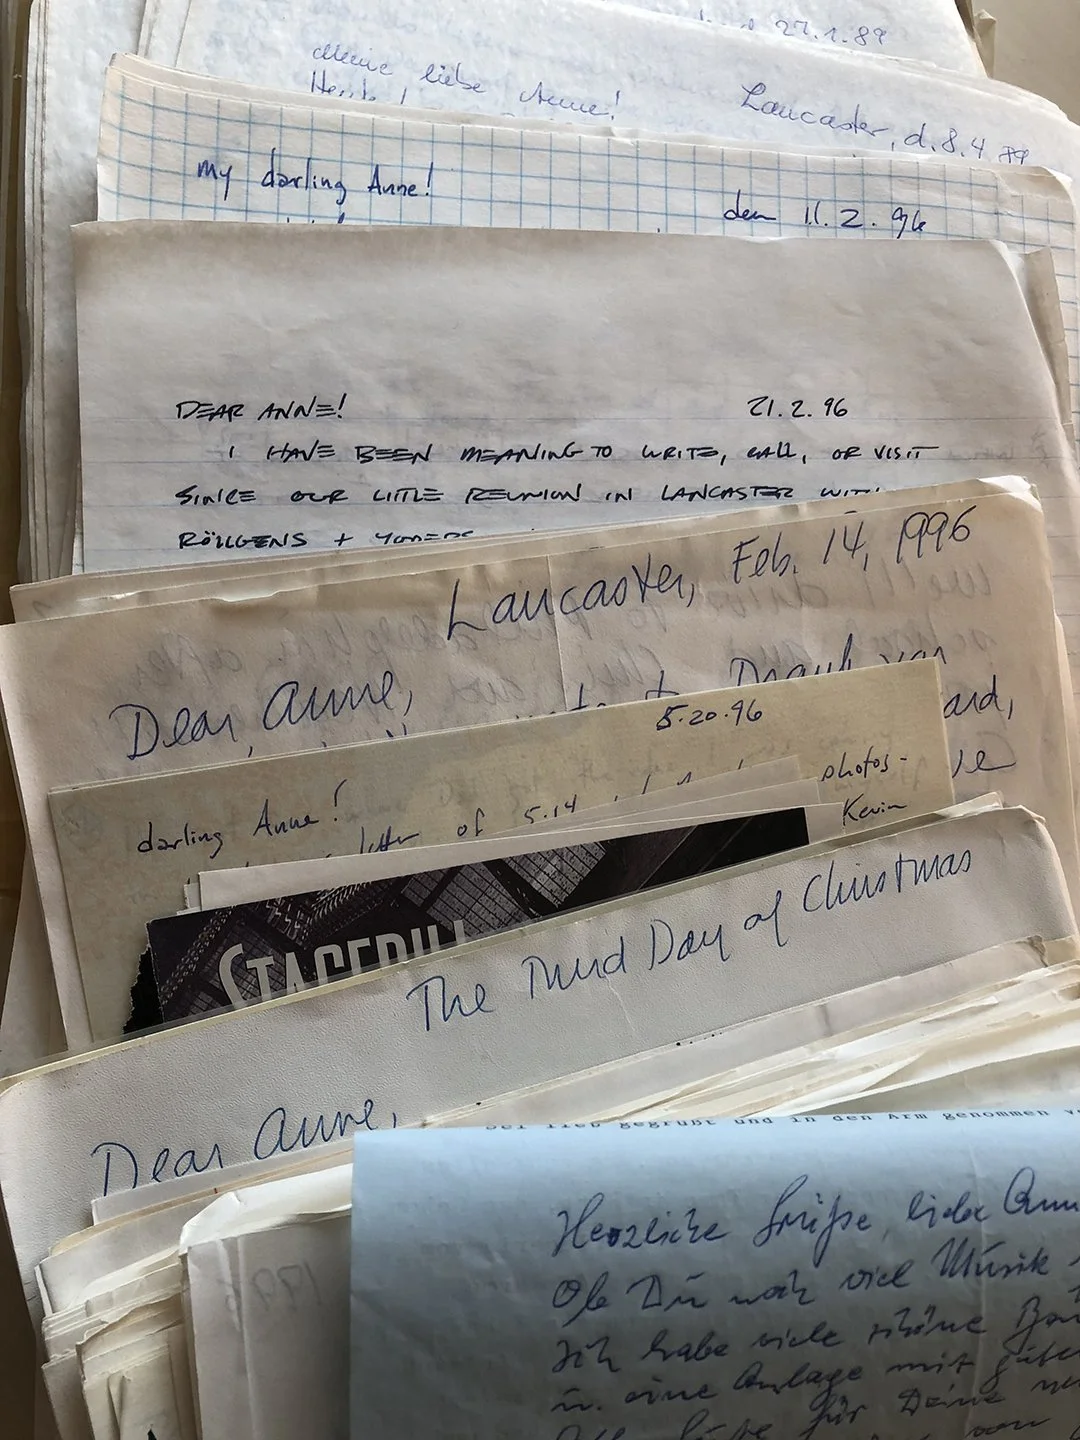 27.1.89
Meine liebe Anne!
Lancaster, d. 8.4.89
My darling Anne!
den 11.2.96
DEAR ANNE!
21.2.96
I HAVE BEEN MEANING TO WRITE, CALL, OR VISIT
SINCE OUR LITTLE REUNION IN LANCASTER WITH
RÖLLGENS + YODERS
Lancaster, Feb. 14, 1996
Dear Anne,
ard,
5.20.96
darling Anne!
letter of 5.14
photos-
Kevin
STAGEBILL
The Third Day of Christmas
Dear Anne,
gegrüßt und in den Arm genommen
Herzliche Grüße, liebe Anne
Ob Du noch viel Musik
Ich habe viele schöne
u. eine Anlage mit
für Deine